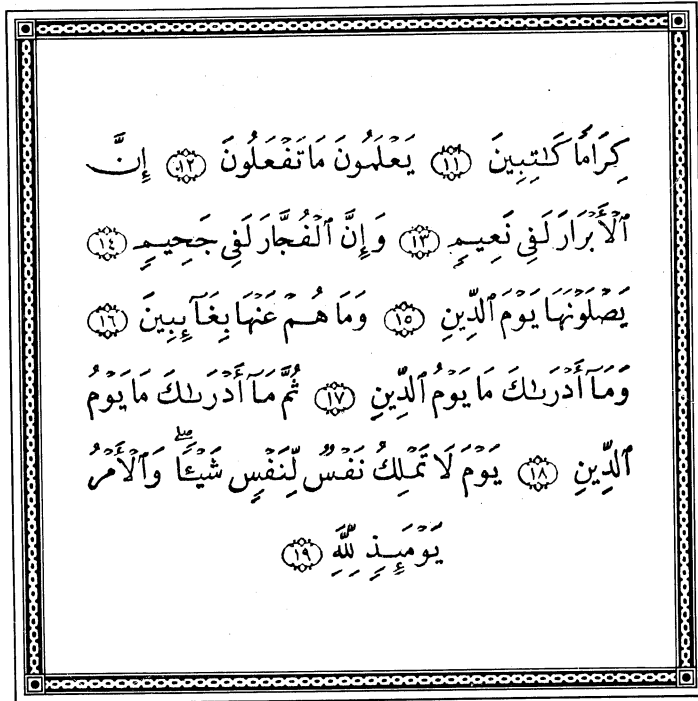 كِرَامًا كَـٰتِبِينَ ١١ يَعْلَمُونَ مَا تَفْعَلُونَ ١٢ إِنَّ
ٱلْأَبْرَارَ لَفِى نَعِيمٍ ١٣ وَإِنَّ ٱلْفُجَّارَ لَفِى جَحِيمٍ ١٤
يَصْلَوْنَهَا يَوْمَ ٱلدِّينِ ١٥ وَمَا هُمْ عَنْهَا بِغَآئِبِينَ ١٦
وَمَآ أَدْرَىٰكَ مَا يَوْمُ ٱلدِّينِ ١٧ ثُمَّ مَآ أَدْرَىٰكَ مَا يَوْمُ
ٱلدِّينِ ١٨ يَوْمَ لَا تَمْلِكُ نَفْسٌ لِّنَفْسٍ شَيْـًٔا ۖ وَٱلْأَمْرُ
يَوْمَئِذٍ لِّلَّهِ ١٩